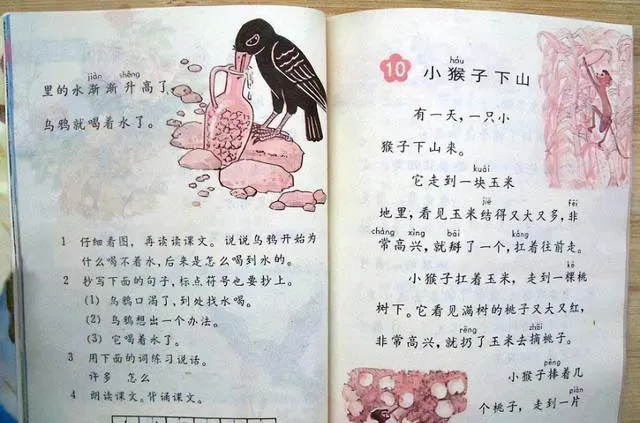 jiàn shēng
里的水渐渐升高了,
乌鸦就喝着水了。
1 仔细看图,再读读课文。说说乌鸦开始为
什么喝不着水,后来是怎么喝到水的。
2 抄写下面的句子,标点符号也要抄上。
(1) 乌鸦口渴了,到处找水喝。
(2) 乌鸦想出一个办法。
(3) 它喝着水了。
3 用下面的词练习说话。
许多 怎么
4 朗读课文。背诵课文。
hóu
10 小猴子下山
有一天,一只小
猴子下山来。
kuài
它走到一块玉米
jiē fēi
地里,看见玉米结得又大又多,非
cháng xìng bāi káng
常高兴,就掰了一个,扛着往前走。
小猴子扛着玉米,走到一棵桃
树下。它看见满树的桃子又大又红,
rēng zhāi
非常高兴,就扔了玉米去摘桃子。
pěng
小猴子捧着几
piàn
个桃子,走到一片